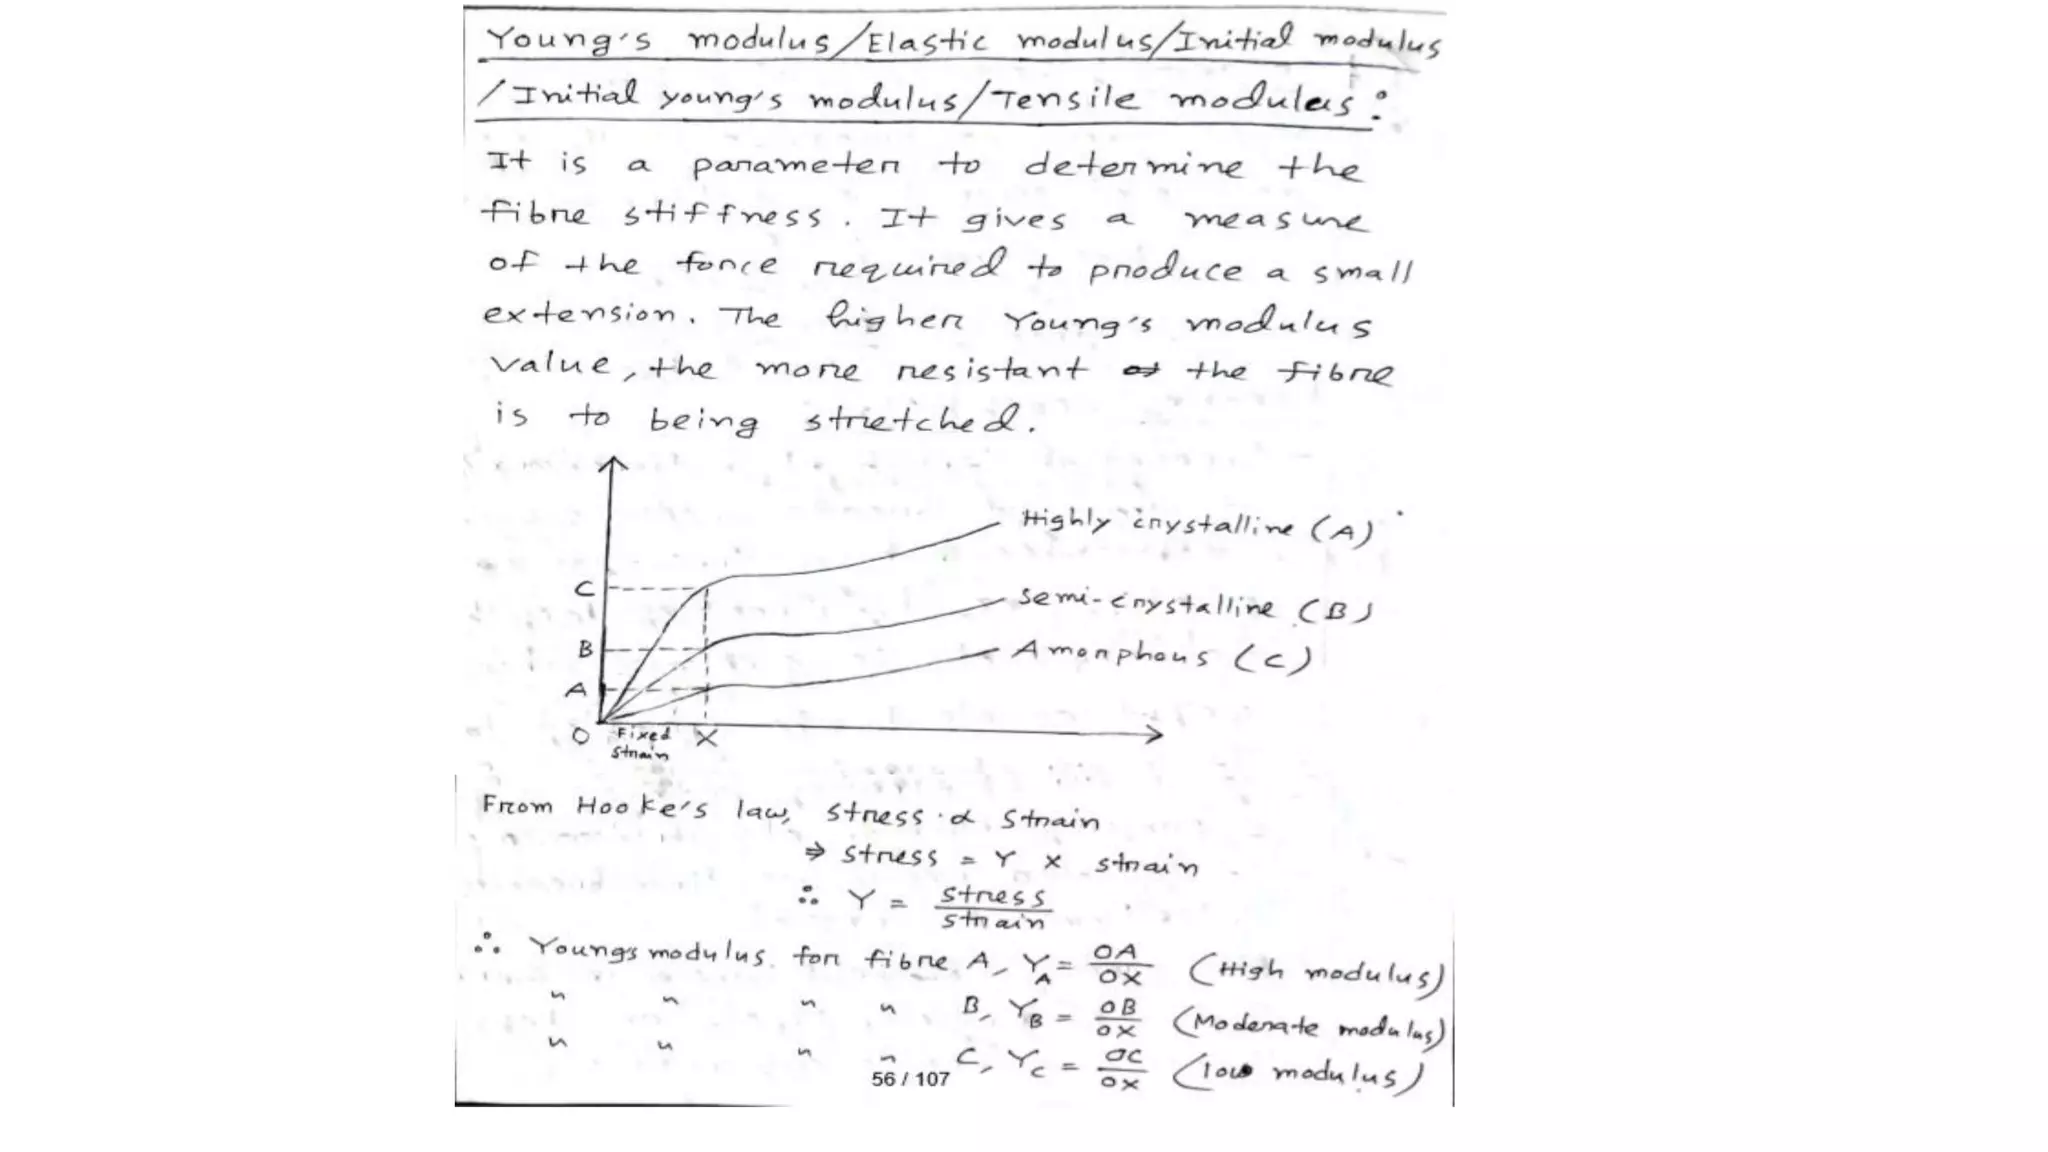 Young's modulus/Elastic modulus/Initial modulus
/Initial young's modulus/Tensile modulus:
It is a parameter to determine the
fibre stiffness. It gives a measure
of the force required to produce a small
extension. The higher Young's modulus
value, the more resistant the fibre
is to being stretched.
Highly crystalline (A)
C
Semi-crystalline (B)
B
Amorphous (C)
A
O Fixed X
strain
From Hooke's law, stress ∝ strain
⇒ stress = Y × strain
∴ Y = stress
strain
∴ Youngs modulus for fibre A, Y_A = OA/OX (High modulus)
" " " " B, Y_B = OB/OX (Moderate modulus)
" " " " C, Y_C = OC/OX (low modulus)
56 / 107